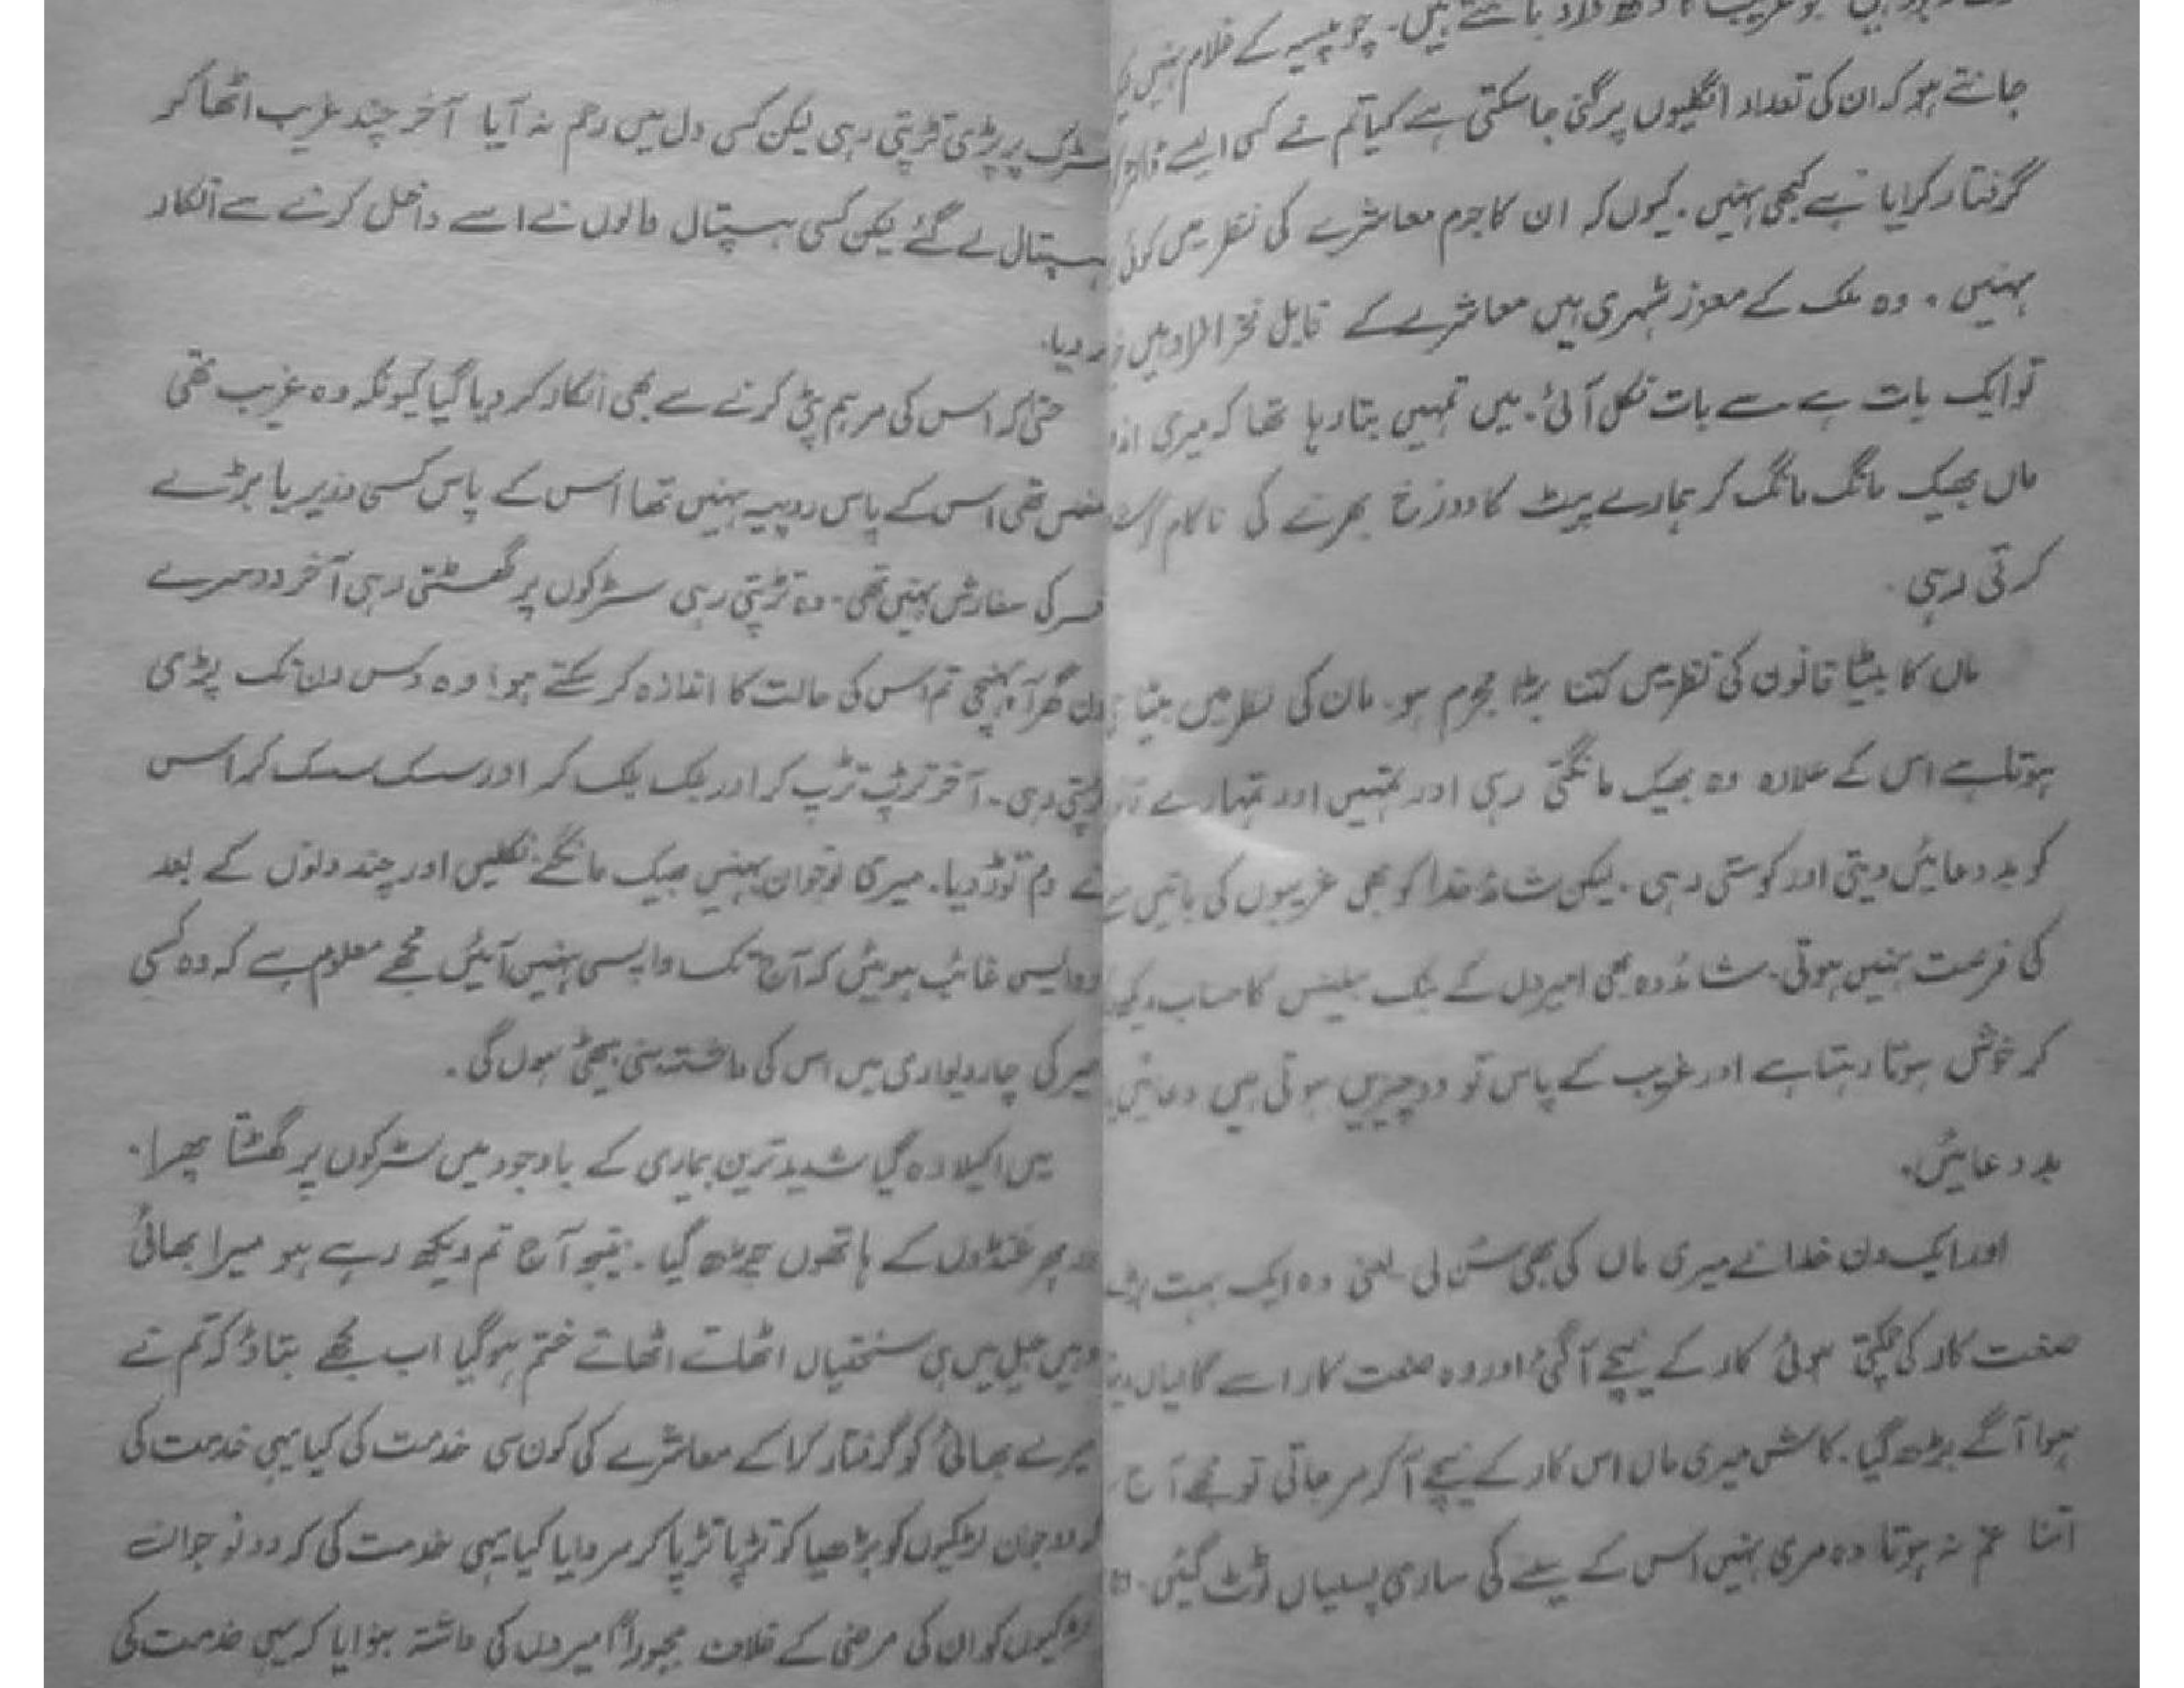 جو پیسہ کے غلام نہیں
جانتے ہو کہ ان کی تعداد انگلیوں پر گنی جا سکتی ہے کیا تم نے کسی ایسے
گرفتار کرایا ہے کبھی نہیں۔ کیوں کہ ان کا جرم معاشرے کی نظر میں کوئی
نہیں۔ وہ ملک کے معزز شہری ہیں معاشرے کے قابل فخر افراد ہیں
تو ایک بات ہے سے بات نکل آئی۔ میں تمہیں بتا رہا تھا کہ میری
ماں بھیک مانگ مانگ کر ہمارے پیٹ کا دوزخ بھرنے کی ناکام
کرتی رہی۔
ماں کا بیٹا قانون کی نظر میں کتنا بڑا مجرم ہو۔ مان کی نظر میں بیٹا
ہوتا ہے اس کے علاوہ وہ بھیک مانگتی رہی اور تمہیں اور تمہارے
کو بد دعائیں دیتی اور کوستی رہی۔ لیکن شائد خدا کو بھی غریبوں کی باتیں
کی فرصت نہیں ہوتی۔ شائد وہ بھی امیروں کے بنک بیلنس کا حساب
کر خوش ہوتا رہتا ہے اور غریب کے پاس تو دو چیزیں ہوتی ہیں دعائیں
بد دعائیں۔
اور ایک دن خدا نے میری ماں کی بھی سُن لی یعنی وہ ایک بہت
صنعت کار کی چمکتی ہوئی کار کے نیچے آ گئی اور وہ صنعت کار اسے گالیاں
ہوا آگے بڑھ گیا۔ کاش میری ماں اس کار کے نیچے آ کر مر جاتی تو مجھے آج
اتنا غم نہ ہوتا وہ مری نہیں اس کے سینے کی ساری پسلیاں ٹوٹ گئیں۔
سڑک پر پڑی تڑپتی رہی لیکن کسی دل میں رحم نہ آیا آخر چند غریب اٹھا کر
ہسپتال لے گئے لیکن کسی ہسپتال والوں نے اسے داخل کرنے سے انکار
کر دیا۔
حتیٰ کہ اس کی مرہم پٹی کرنے سے بھی انکار کر دیا گیا کیونکہ وہ غریب تھی
مفلس تھی اس کے پاس روپیہ نہیں تھا اس کے پاس کسی وزیر یا بڑے
افسر کی سفارش نہیں تھی۔ وہ تڑپتی رہی سڑکوں پر گھسٹتی رہی آخر دوسرے
دن گھر آ پہنچی تم اس کی حالت کا اندازہ کر سکتے ہو! وہ دس دن تک پڑی
تڑپتی رہی۔ آخر تڑپ تڑپ کر اور بلک بلک کر اور سسک سسک کر اس
نے دم توڑ دیا۔ میری نوجوان بہنیں بھیک مانگنے نکلیں اور چند دنوں کے بعد
وہ ایسی غائب ہوئیں کہ آج تک واپس نہیں آئیں مجھے معلوم ہے کہ وہ کسی
امیر کی چار دیواری میں اس کی داشتہ بنی بیٹھی ہوں گی۔
میں اکیلا رہ گیا شدید ترین بیماری کے باوجود میں سڑکوں پر گھسٹتا پھرا۔
اور پھر غنڈوں کے ہاتھوں چڑھ گیا۔ نتیجہ آج تم دیکھ رہے ہو میرا بھائی
وہیں جیل میں ہی سختیاں اٹھاتے اٹھاتے ختم ہو گیا اب مجھے بتاؤ کہ تم نے
میرے بھائی کو گرفتار کرا کے معاشرے کی کون سی خدمت کی کیا یہی خدمت کی
کہ دو جوان لڑکیوں کو بڑھیا کو تڑپا تڑپا کر مروایا کیا یہی خدمت کی کہ دو نوجوان
لڑکیوں کو ان کی مرضی کے خلاف مجبوراً امیروں کی داشتہ بنوایا کر یہی خدمت کی